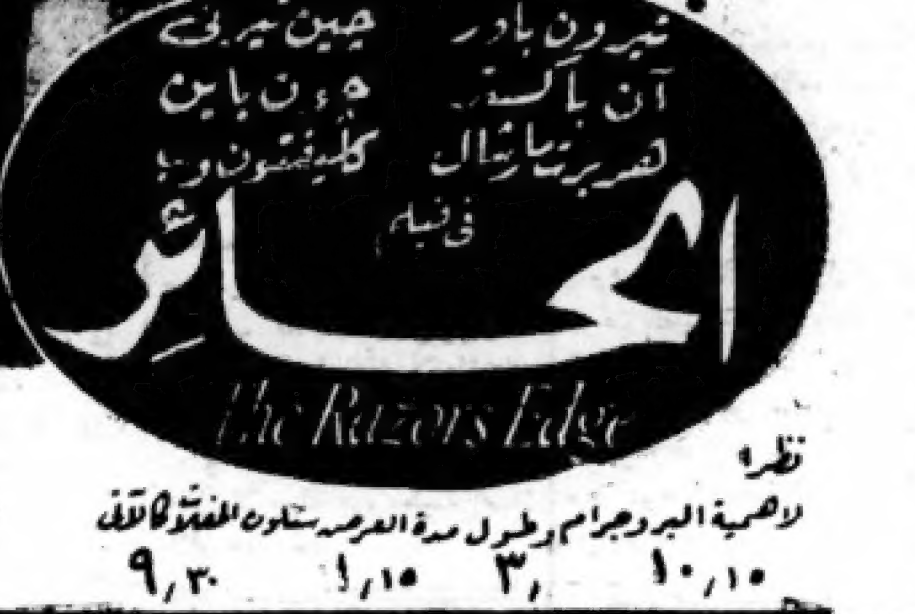 تيرون باور جين تيرنى
آن باكستر جون باين
هربرت مارشال كليفتون وب
فى فيلم
الحائر
The Razors Edge
نظرا
لاهمية البروجرام وطول مدة العرض ستكون الحفلات كالآتى
١٠,١٥ ٣, ١,١٥ ٩,٣٠